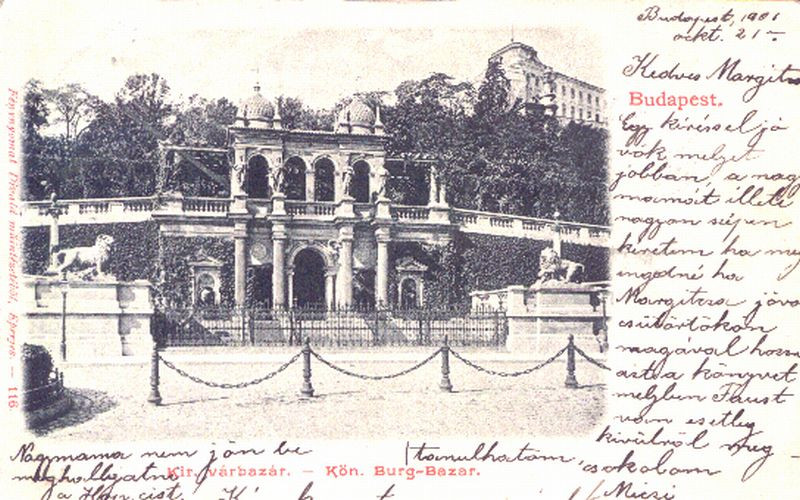 Budapest, 1901
okt. 21-
Kedves Margitza
Budapest.
Egy kéréssel jö
vök melyet
jobban, a nagy
mamát illeti
nagyon szépen
kéretem ha meg
engedné ha
Margitza jövő
csütörtökön
magával hozná
azt a könyvet
melyben Faust
van esetleg
kívülről meg
tanulhatom,
csokolom
Miczi
Nagymama nem jön be
meghallgatni
a
Kir. várbazár. – Kön. Burg-Bazar.
Fénynyomat Divald műintézetéből, Eperjes — 116